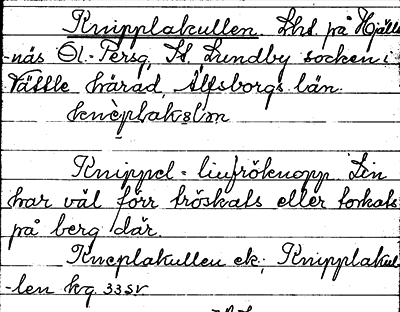 Knipplakullen. Lhs på Hjäll-
-näs Öl.-Persg, St. Lundby socken i
Vättle härad, Älfsborgs län.
knèplakɷlɷn
Knippel = linfröknopp. Lin
har väl förr tröskats eller torkats
på berg där.
Kneplakullen ek; Knipplakul
-len kg 33 sv